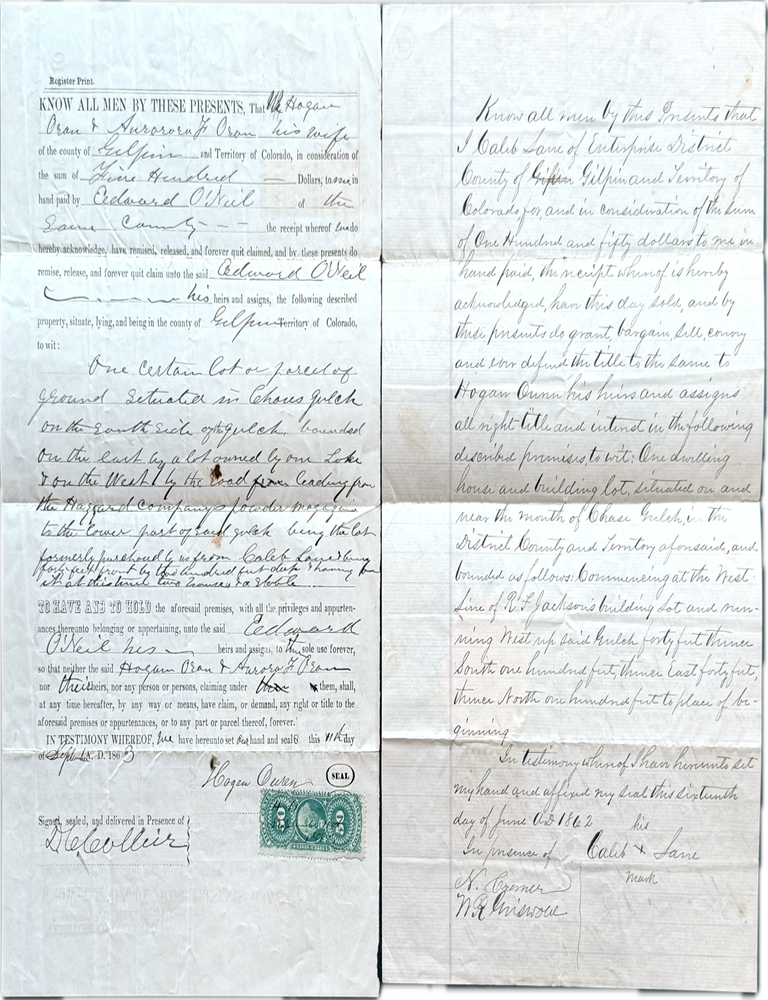 Register Print.
KNOW ALL MEN BY THESE PRESENTS, That We Hogan
Oran & Aurorora F Oran his wife
of the county of Gilpin and Territory of Colorado, in consideration of
the sum of Five Hundred — Dollars, to me in
hand paid by Edward O'Neil of the
Same County — — the receipt whereof we do
hereby acknowledge, have remised, released, and forever quit claimed, and by these presents do
remise, release, and forever quit claim unto the said Edward O'Neil
his heirs and assigns, the following described
property, situate, lying, and being in the county of Gilpin Territory of Colorado,
to wit:
One certain lot or parcel of
ground situated in Chases gulch
on the South Side of gulch, bounded
on the east by a lot owned by one Lake
& on the West by the road from leading from
the Haggard Companys powder magazine
to the lower part of said gulch being the lot
formerly purchased by us from Caleb Lane being
forty feet front by two hundred feet deep & having on
it at this time two houses & a Stable
TO HAVE AND TO HOLD the aforesaid premises, with all the privileges and appurten-
ances thereunto belonging or appertaining, unto the said Edward
O'Neil his — heirs and assigns, to the sole use forever,
so that neither the said Hogan Oran & Aurora F Oran
nor their heirs, nor any person or persons, claiming under them, shall,
at any time hereafter, by any way or means, have claim, or demand, any right or title to the
aforesaid premises or appurtenances, or to any part or parcel thereof, forever.
IN TESTIMONY WHEREOF, we have hereunto set our hand and seals this 11th day
of Sept A. D. 1863
Hogan Owen SEAL
Signed, sealed, and delivered in Presence of
D C Collier
50 50
Know all men by this Presents that
I Caleb Lane of Enterprise District
County of Gilpin and Territory of
Colorado for and in consideration of the sum
of One Hundred and fifty dollars to me in
hand paid, the receipt whereof is hereby
acknowledged, have this day sold, and by
these presents do grant, bargain, sell, convey
and ever defend the title to the same to
Hogan Owen his heirs and assigns
all right title and interest in the following
described premises, to wit: One dwelling
house and building lot, situated on and
near the mouth of Chase Gulch, in the
District County and Territory aforesaid, and
bounded as follows: Commencing at the West
Line of R. S. Jacksons building Lot and run-
ning West up said Gulch forty feet thence
South one hundred feet, thence East forty feet,
thence North one hundred feet to place of be-
ginning
In testimony whereof I have hereunto set
my hand and affixed my seal this sixteenth
day of June A.D. 1862
his
In presence of Caleb x Lane
mark
N.
W R Griswold